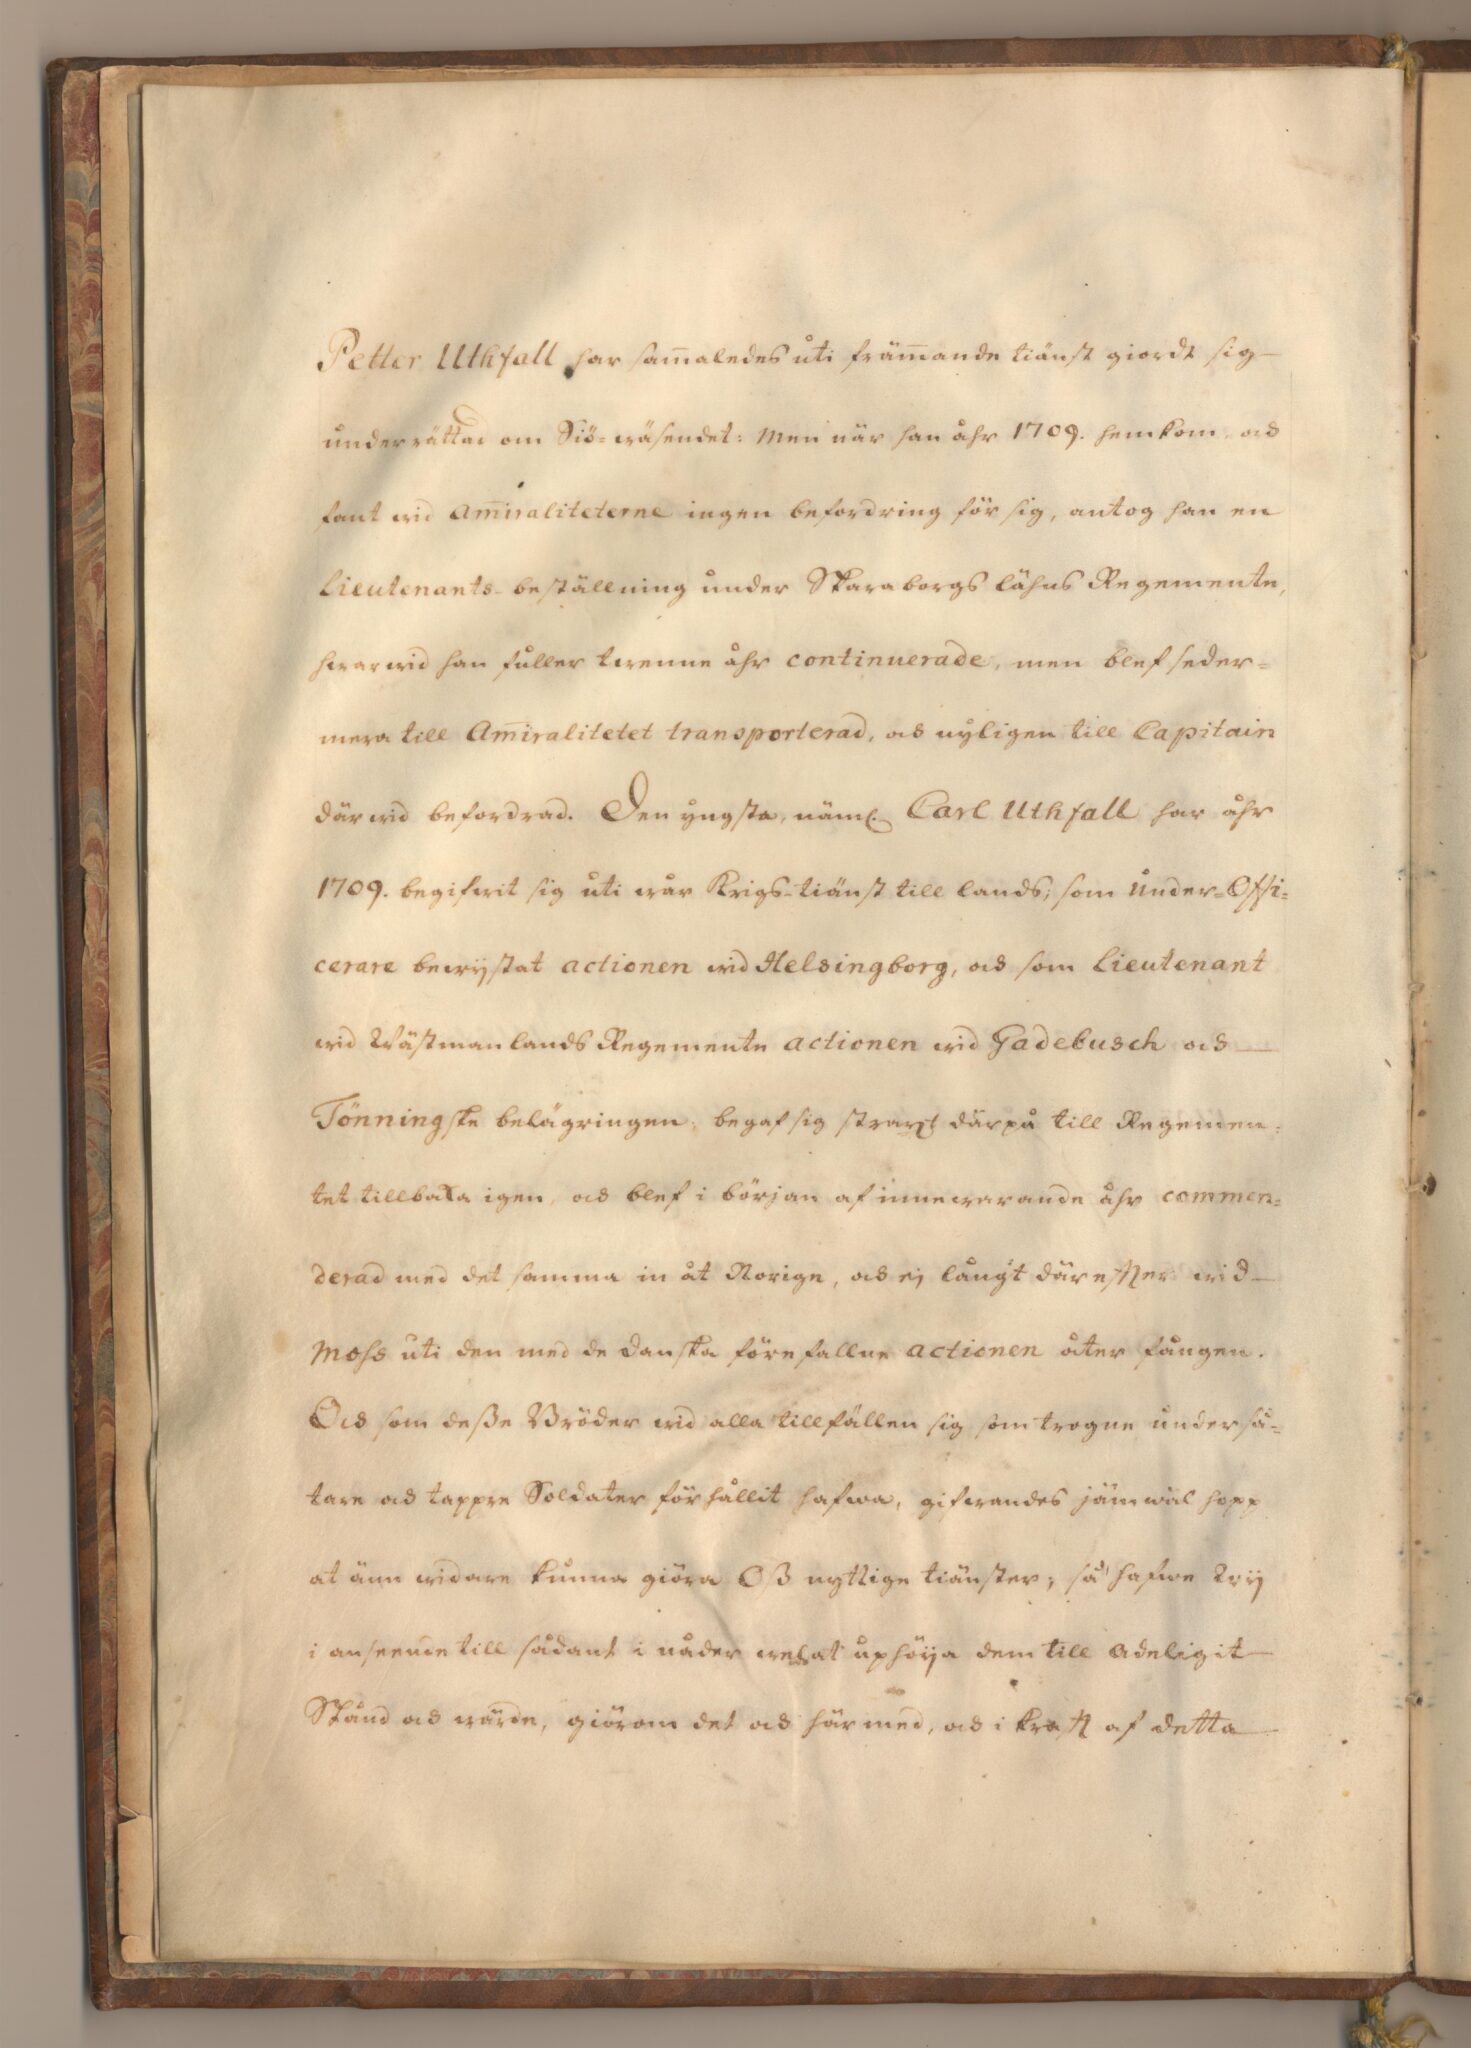 Petter Uthfall har sam̄aledes uti främ̄ande tiänst giordt sig
underrättad om Siö-wäsendet: Men när han åhr 1709. hemkom, och
fant wid Am̄iraliteterne ingen befordring för sig, antog han en
Lieutenants-beställning under Skaraborgs lähns Regemente,
hwarwid han fuller twenne åhr continuerade, men blef seder-
mera till Am̄iralitetet transporterad, och nyligen till Capitain
därwid befordrad. Den yngsta, näml. Carl Uthfall har åhr
1709. begifwit sig uti wår Krigs-tiänst till lands, som Under-Offi-
cerare bewijstat actionen wid Helsingborg, och som Lieutenant
wid Wästmanlands Regemente actionen wid Gadebusch och
Tönningske belägringen, begaf sig straxt därpå till Regemen-
tet tillbaka igen, och blef i början af innewarande åhr commen-
derad med det samma in åt Norige, och ej långt därefter wid
Moss uti den med de Danska förefallne actionen åter fången.
Och som deße Bröder wid alla tillfällen sig som trogne underså-
tare och tappre Soldater förhållit hafwa, gifwandes jämwäl hopp
at änn widare kunna giöra Oß nyttige tiänster; så hafwe Wij
i anseende till sådant i nåder welat uphöija dem till Adeligit
Stånd och wärde, giörom det och härmed, och i kraft af detta